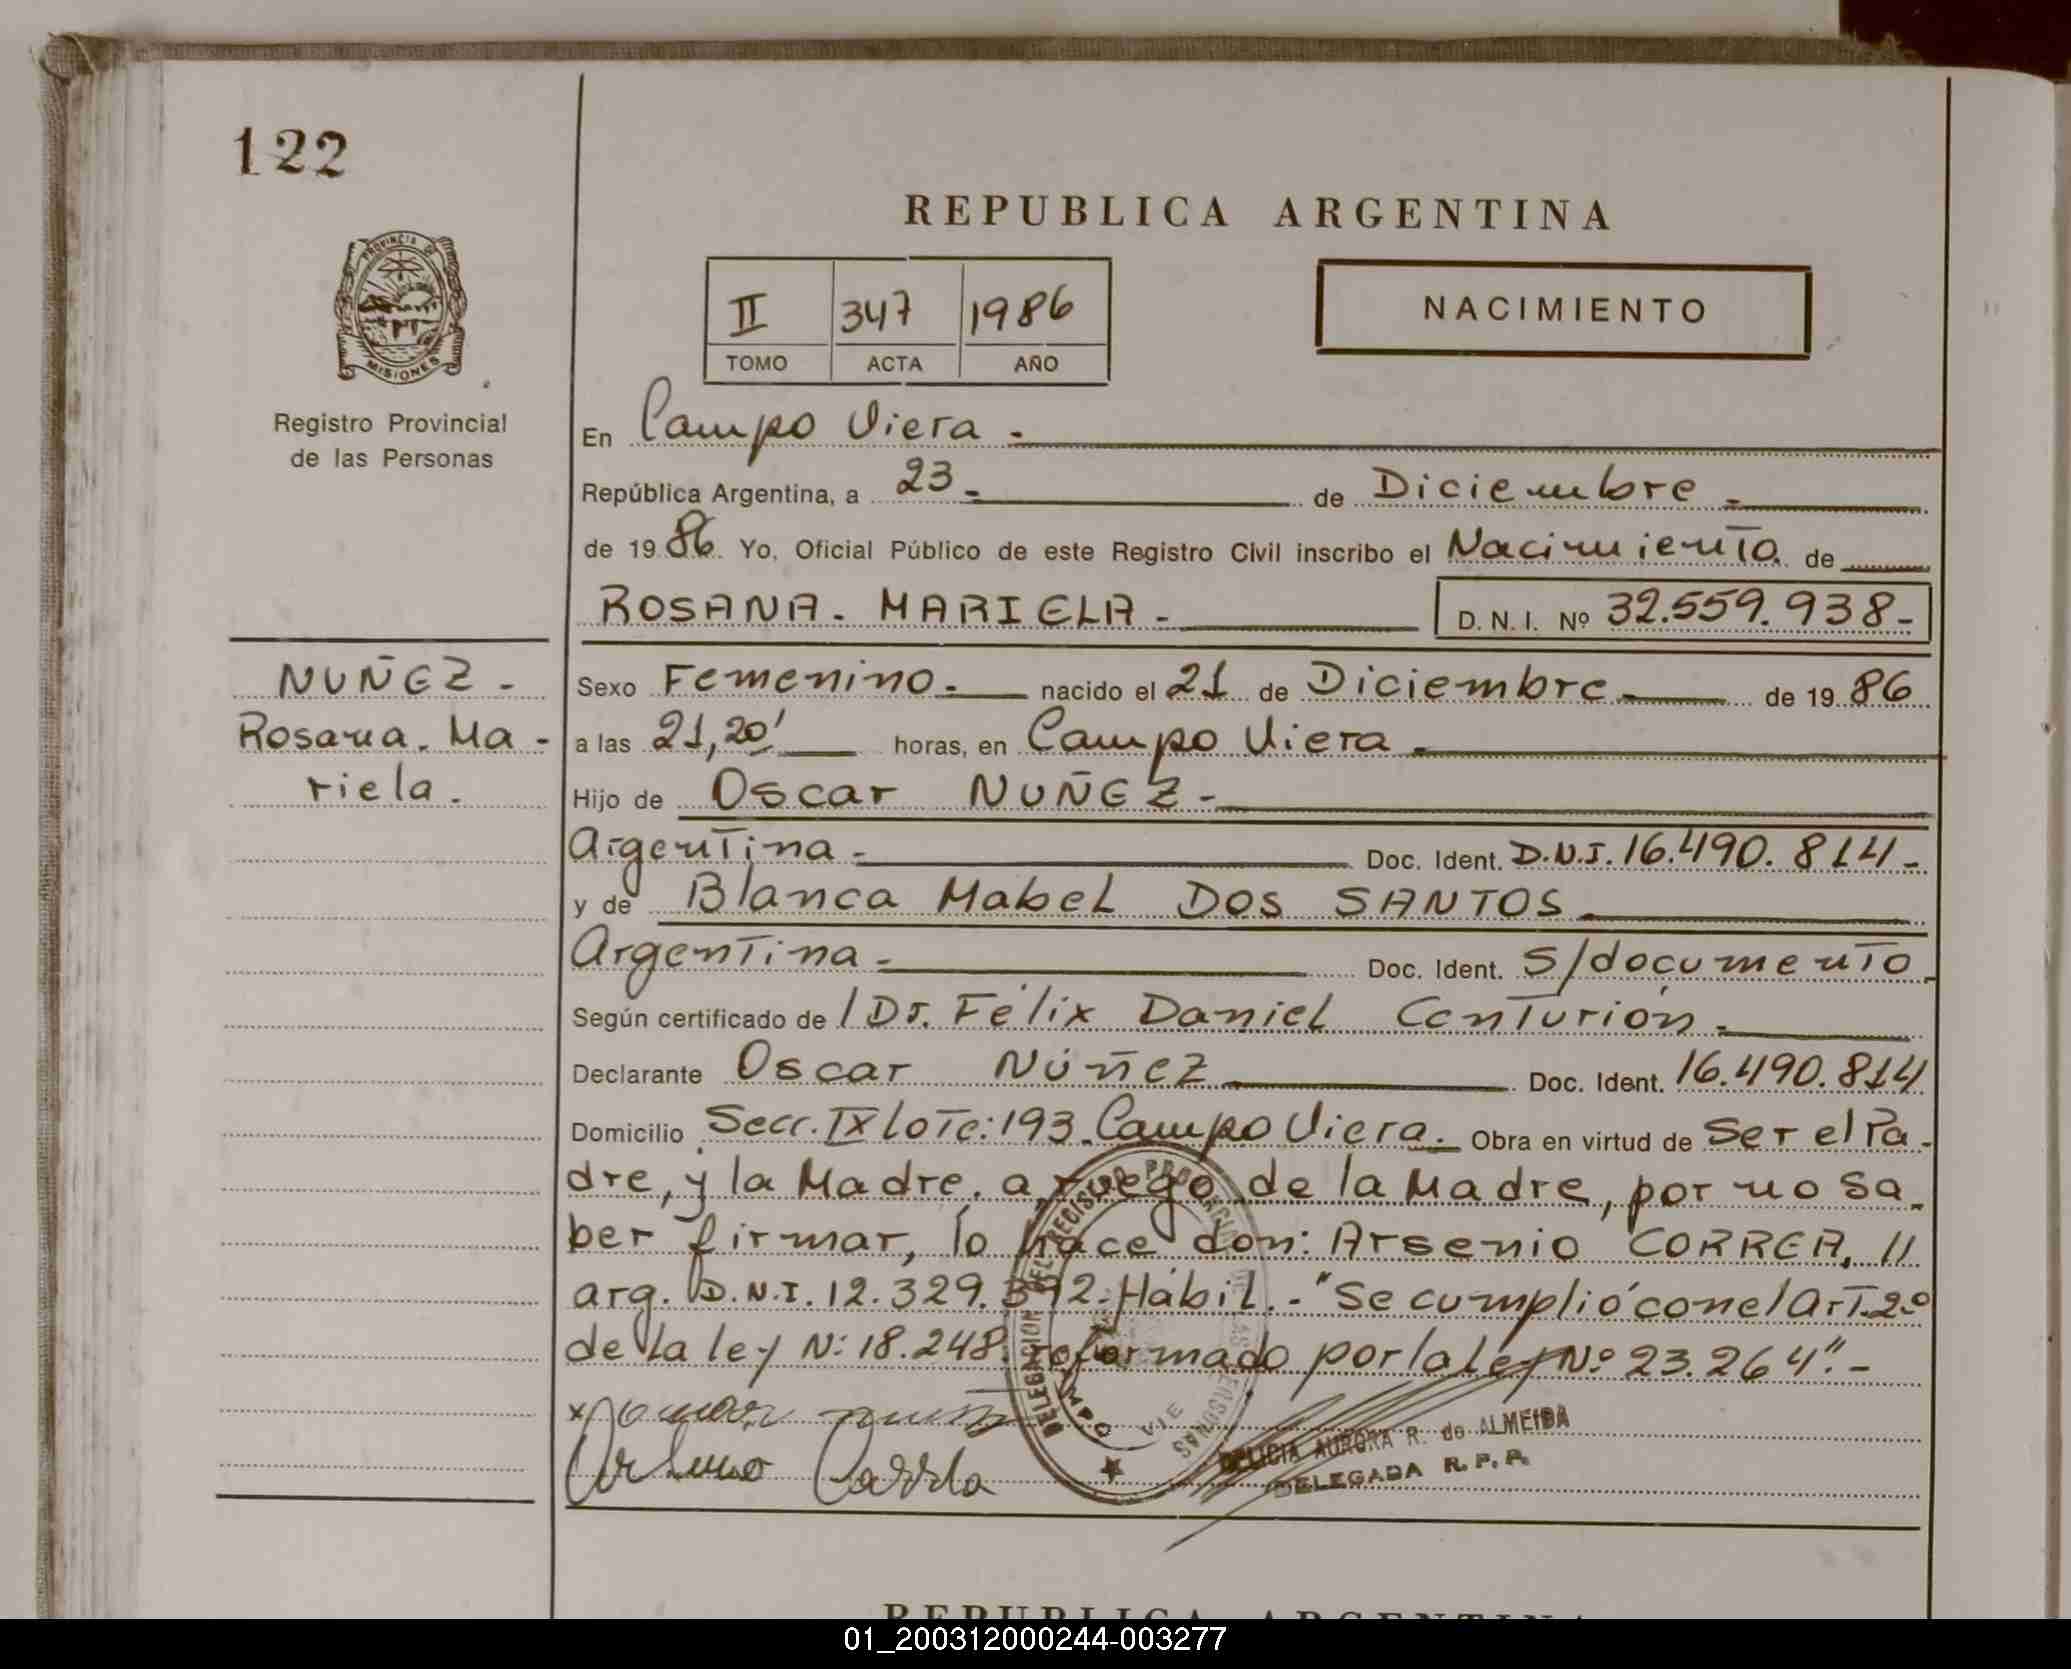 122
REPUBLICA ARGENTINA
PROVINCIA DE
MISIONES
Registro Provincial
de las Personas
II 347 1986
TOMO ACTA AÑO
NACIMIENTO
En Campo Viera -
República Argentina, a 23 - de Diciembre -
de 19 86 Yo, Oficial Público de este Registro Civil inscribo el Nacimiento de
ROSANA - MARIELA - D. N. I. Nº 32.559.938 -
NUÑEZ -
Rosana. Ma -
riela.
Sexo Femenino - nacido el 21 de Diciembre - de 19 86
a las 21,20' horas, en Campo Viera -
Hijo de Oscar NUÑEZ -
Argentina - Doc. Ident. D.N.I. 16.490.814 -
y de Blanca Mabel DOS SANTOS -
Argentina - Doc. Ident. S/documento -
Según certificado de / Dr. Félix Daniel Centurión -
Declarante Oscar Núñez Doc. Ident. 16.490.814
Domicilio Secc. IX lote: 193 Campo Viera. Obra en virtud de Ser el Pa -
dre, y la Madre. a ruego de la Madre, por no sa -
ber firmar, lo hace don: Arsenio CORREA, //
arg. D.N.I. 12.329.392. Hábil. - "Se cumplió con el Art. 2º
de la ley Nº 18.248. reformado por la Ley Nº 23.264". -
DELEGACION DEL REGISTRO PROVINCIAL DE LAS PERSONAS
CAMPO VIE
DELICIA AURORA R. de ALMEIDA
DELEGADA R. P. P.
REPUBLICA ARGENTINA
01_200312000244-003277